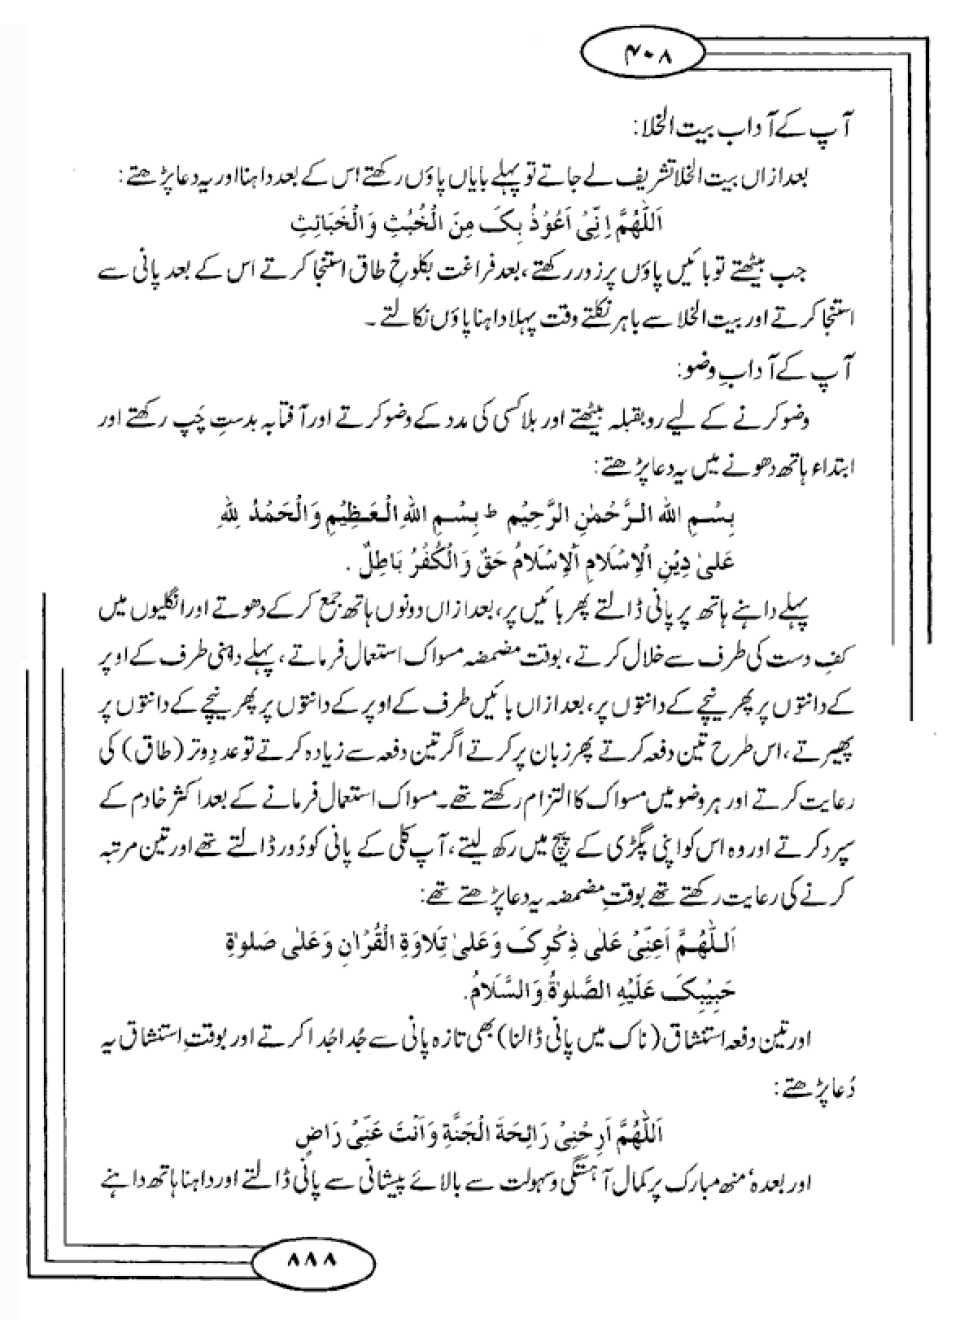 ۴۰۸
آپ کے آداب بیت الخلا:
بعدازاں بیت الخلا تشریف لے جاتے تو پہلے بایاں پاؤں رکھتے اس کے بعد داہنا اور یہ دعا پڑھتے:
اَللّٰهُمَّ اِنِّیْ اَعُوْذُ بِکَ مِنَ الْخُبُثِ وَالْخَبَائِثِ
جب بیٹھتے تو بائیں پاؤں پر زور رکھتے، بعد فراغت بکلوخِ طاق استنجا کرتے اس کے بعد پانی سے
استنجا کرتے اور بیت الخلا سے باہر نکلتے وقت پہلا داہنا پاؤں نکالتے۔
آپ کے آدابِ وضو:
وضو کرنے کے لیے رو بقبلہ بیٹھتے اور بلا کسی کی مدد کے وضو کرتے اور آفتابہ بدستِ چَپ رکھتے اور
ابتداء ہاتھ دھونے میں یہ دعا پڑھتے:
بِسْمِ اللهِ الرَّحْمٰنِ الرَّحِیْمِ ط بِسْمِ اللهِ الْعَظِیْمِ وَالْحَمْدُ لِلّٰهِ
عَلیٰ دِیْنِ الْاِسْلَامِ اَلْاِسْلَامُ حَقٌ وَالْکُفْرُ بَاطِلٌ .
پہلے داہنے ہاتھ پر پانی ڈالتے پھر بائیں پر، بعد ازاں دونوں ہاتھ جمع کرکے دھوتے اور انگلیوں میں
کفِ دست کی طرف سے خلال کرتے، بوقت مضمضہ مسواک استعمال فرماتے، پہلے داہنی طرف کے اوپر
کے دانتوں پر پھر نیچے کے دانتوں پر، بعد ازاں بائیں طرف کے اوپر کے دانتوں پر پھر نیچے کے دانتوں پر
پھیرتے، اس طرح تین دفعہ کرتے پھر زبان پر کرتے اگر تین دفعہ سے زیادہ کرتے تو عددِ وتر (طاق) کی
رعایت کرتے اور ہر وضو میں مسواک کا التزام رکھتے تھے۔ مسواک استعمال فرمانے کے بعد اکثر خادم کے
سپرد کرتے اور وہ اس کو اپنی پگڑی کے پیچ میں رکھ لیتے، آپ کلی کے پانی کو دُور ڈالتے تھے اور تین مرتبہ
کرنے کی رعایت رکھتے تھے بوقتِ مضمضہ یہ دعا پڑھتے تھے:
اَللّٰهُمَّ اَعِنِّیْ عَلٰی ذِکْرِکَ وَعَلیٰ تِلَاوَةِ الْقُرْاٰنِ وَعَلٰی صَلوٰةِ
حَبِیْبِکَ عَلَیْهِ الصَّلوٰةُ وَالسَّلَامُ.
اور تین دفعہ استنشاق (ناک میں پانی ڈالنا) بھی تازہ پانی سے جُدا جُدا کرتے اور بوقتِ استنشاق یہ
دُعا پڑھتے:
اَللّٰهُمَّ اَرِحْنِیْ رَائِحَةَ الْجَنَّةِ وَاَنْتَ عَنِّیْ رَاضٍ
اور بعدہٗ منھ مبارک پر کمال آہستگی و سہولت سے بالائے پیشانی سے پانی ڈالتے اور داہنا ہاتھ داہنے
۸۸۸